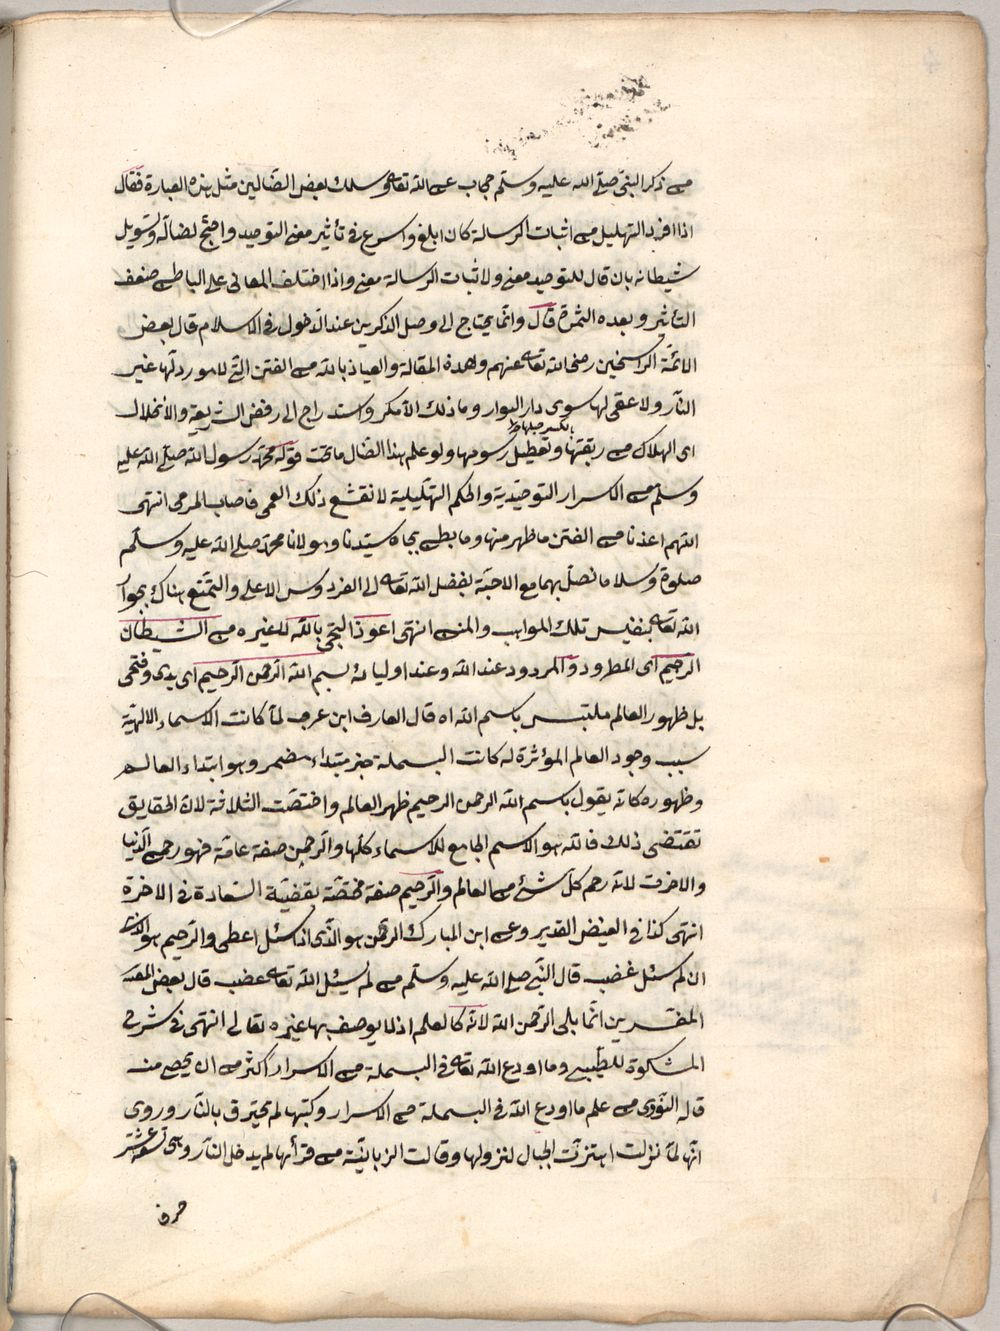 من ذكر النبي صلى الله عليه وسلم حجاب عن الله تعالى وسلك بعض الضالين مثل هذه العبارة فقال
اذا افرد التهليل من اثبات الرسالة كان ابلغ واسرع في تأثير معنى التوحيد واحتج لضالة وتسويل
شيطانه بان قال للتوحيد معنى ولاثبات الرسالة معنى واذا اختلف المعاني على الباطن ضعف
التأثير وبعده الثمرة قال وانما يحتاج الى وصل الذكرين عند الدخول في الاسلام قال بعض
الائمة الراسخين رضى الله تعالى عنهم وهذه المقالة والعياذ بالله من الفتن التى لا مورد لها غير
النار ولا عقبى لها سوى دار البوار وما ذلك الا مكر واستدراج الى رفض الشريعة والانحلال
اى الهلاك من ربقتها وتعطيل رسومها ولو علم هذا الضال ما تحت قوله محمد رسول الله صلى الله عليه
وسلم من الاسرار التوحيدية والحكم التهليلية لانقشع ذلك العمى فاصاب المرمى انتهى
اللهم اعذنا من الفتن ما ظهر منها وما بطن بجاه سيدنا ومولانا محمد صلى الله عليه وسلم
صلوة وسلاما نصل بهما مع الاحبة بفضل الله تعالى الى الفردوس الاعلى والتمتع هناك بجوار
الله تعالى بنفيس تلك المواهب والمنن انتهى اعوذ التجى بالله لا غيره من الشيطان
الرجيم اى المطرود والمردود عند الله وعند اوليائه بسم الله الرحمن الرحيم اى بدى وفتحى
بل ظهور العالم ملتبس باسم الله اه قال العارف ابن عربى لما كانت الاسماء الالهية
سبب وجود العالم المؤثرة له كانت البسملة خبر مبتداء مضمر وهو ابتداء العالم
وظهوره كانه يقول باسم الله الرحمن الرحيم ظهر العالم واختصت الثلاثة لان الحقايق
تقتضى ذلك فالله هو الاسم الجامع للاسماء كلها والرحمن صفة عامة فهو رحمن الدنيا
والاخرت لانه رحم كل شئ من العالم والرحيم صفة مختصة بقضية السعادة في الاخرة
انتهى كذا في الفيض القدير وعن ابن المبارك الرحمن هو الذى اذا سئل اعطى والرحيم هو الذى
ان لم يسئل غضب قال النبي صلى الله عليه وسلم من لم يسئل الله تعالى غضب قال بعض
المفسرين انما يلى الرحمن الله لانه كالعلم اذ لا يوصف بها غيره تعالى انتهى في شرح
المشكوة للطيبى وما اودع الله تعالى في البسملة من الاسرار اكثر من ان يحصى منه
قال النووى من علم ما اودع الله في البسملة من الاسرار وكتبها لم يحترق بالنار وروى
انها لما نزلت اهتزت الجبال لنزولها وقالت الزبانية من قرأها لم يدخل النار وهى تسعة عشر
حرف